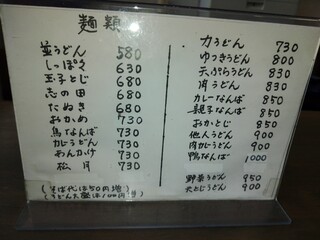 麺類
並うどん 580
しっぽく 630
玉子とじ 680
志の田 680
たぬき 680
おかめ 730
鳥なんば 730
カレーうどん 730
あんかけ 730
松月 730
(そば代は50円増)
(うどん大盛は100円増)
力うどん 730
ゆつきうどん 800
天ぷらうどん 830
肉うどん 830
カレーなんば 850
親子なんば 850
おかとじ 850
他人うどん 900
肉カレーうどん 900
鴨なんば 1000
野菜うどん 950
天とじうどん 900